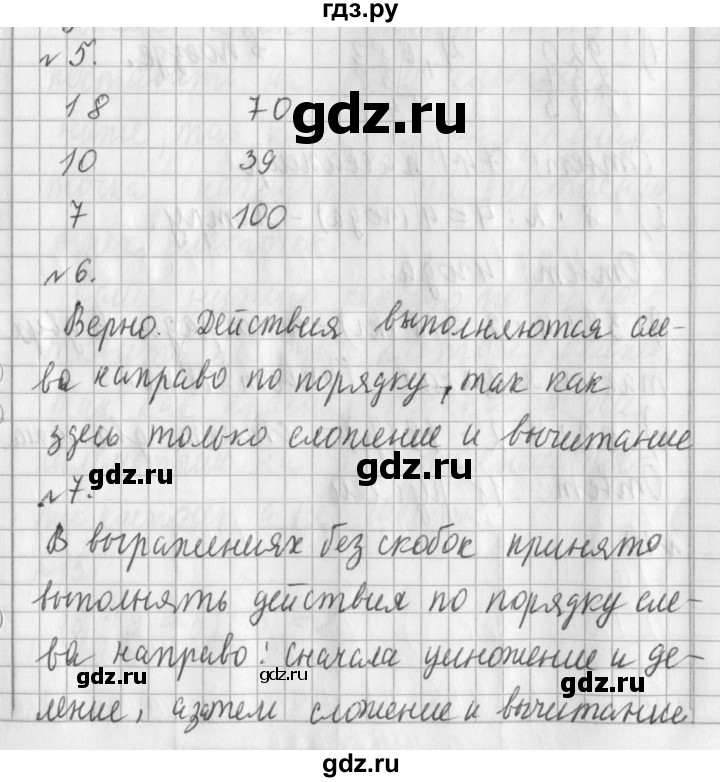 гдз.ру
№5.
18 70
10 39
7 100
gdz.ru
№6.
Верно. Действия выполняются сле-
ва направо по порядку, так как
здесь только сложение и вычитание
gdz.ru
gdz.ru
№7.
В выражениях без скобок принято
выполнять действия по порядку сле-
ва направо: сначала умножение и де-
gdz.ru
gdz.ru
gdz.ru
ление, а затем сложение и вычитание.
gdz.ru